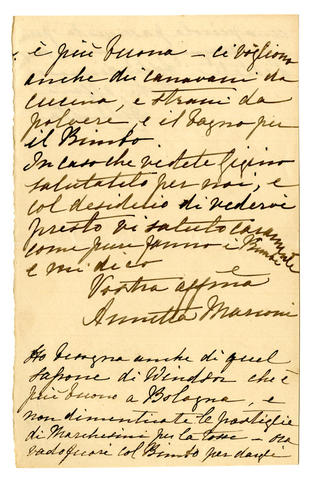 è più buona – ci vogliono
anche dei canavani da
cucina, e strani da
polvere, e il bagno per
il Bimbo.
In caso che vedete Gigino
salutatelo per noi, e
col desiderio di vedervi
presto vi saluto caramente
come pure fanno i Bimbi
e mi dico
Vostra affma
Annetta Marconi
Ho bisogna anche di quel
sapone di Windsor che è
più buono a Bologna, e
non dimenticate le pastiglie
di Marchesini per la tosse –
vado fuori col Bimbo per dargli